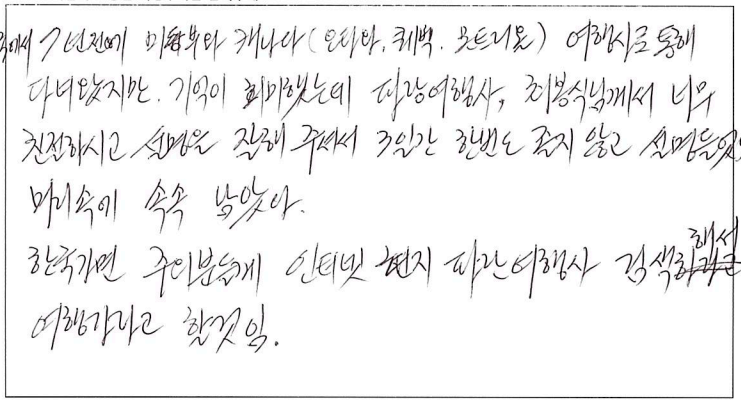 7년전에 미동부와 캐나다(오타와, 퀘벡, 몬트리올) 여행사를 통해
다녀왔지만, 기억이 희미했는데 파랑여행사, 최봉식님께서 너무
친절하시고 설명을 잘해 주셔서 3일간 한번도 졸지 않고 설명들었고
머리속에 속속 남았다.
한국가면 주위분들게 인터넷 현지 파란여행사 검색해서
여행가라고 할것임.